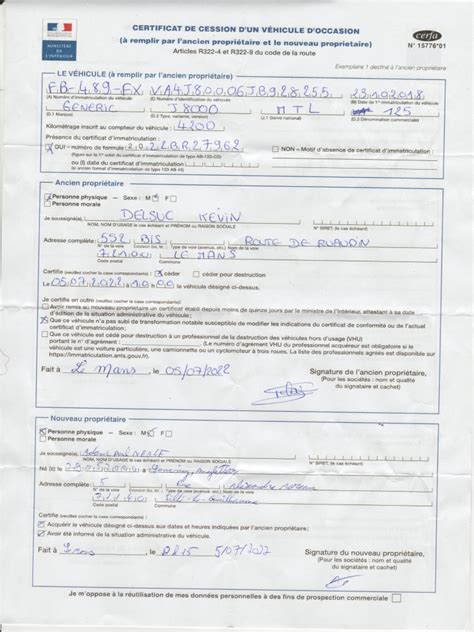 MINISTÈRE DE L'INTÉRIEUR
CERTIFICAT DE CESSION D'UN VÉHICULE D'OCCASION
(à remplir par l'ancien propriétaire et le nouveau propriétaire)
Articles R322-4 et R322-9 du code de la route
cerfa
N° 15776*01
Exemplaire 1 destiné à l'ancien propriétaire
LE VÉHICULE (à remplir par l'ancien propriétaire)
FB-489-FX VA4J8006JB928255 29102018
(A) Numéro d'immatriculation du véhicule (E) Numéro d'identification du véhicule (B) Date de 1re immatriculation du véhicule
GENERIC J8000 MTL 125
(D.1) Marque (D.2) Type, variante, version (J.1) Genre national (D.3) Dénomination commerciale
Kilométrage inscrit au compteur du véhicule : 4200
Présence du certificat d'immatriculation :
OUI - numéro de formule : 2022BR27962
NON - Motif d'absence de certificat d'immatriculation :
(figure sur le 1er volet du certificat d'immatriculation de type AB-123-CD)
ou (I) date du certificat d'immatriculation
(si ancien format d'immatriculation de type 123 AB 01)
Ancien propriétaire
Personne physique – Sexe : M F
Personne morale
Je soussigné(e), DELSUC KEVIN
NOM, NOM D'USAGE le cas échéant et PRÉNOM ou RAISON SOCIALE N° SIRET, (le cas échéant)
Adresse complète : 552 BIS ROUTE DE RUAUDIN
N° de la voie Extension (bis, ter, etc.) Type de voie (avenue, etc.) Nom de la voie
72100 LE MANS
Code postal Commune
Certifie (veuillez cocher la case correspondante) : céder céder pour destruction
Le 05072022 à 10:00 le véhicule désigné ci-dessus.
Je certifie en outre (veuillez cocher la case correspondante) :
Avoir remis au nouveau propriétaire un certificat établi depuis moins de quinze jours par le ministre de l'Intérieur, attestant à sa date d'édition de la situation administrative du véhicule;
Que ce véhicule n'a pas subi de transformation notable susceptible de modifier les indications du certificat de conformité ou de l'actuel certificat d'immatriculation;
Que ce véhicule est cédé pour destruction à un professionnel de la destruction des véhicules hors d'usage (VHU)
Fait à Le Mans, le 05/07/2022
Signature de l'ancien propriétaire,
(Pour les sociétés : nom et qualité
du signataire et cachet)
Nouveau propriétaire
Personne physique – Sexe : M F
Personne morale
Je soussigné(e),
NOM, NOM D'USAGE le cas échéant et PRÉNOM ou RAISON SOCIALE N° SIRET, (le cas échéant)
Né (e) le
Adresse complète : 5
N° de la voie Extension (bis, ter, etc.) Type de voie (avenue, etc.) Nom de la voie
Code postal Commune
Certifie (veuillez cocher la case correspondante) :
Acquérir le véhicule désigné ci-dessus aux date et heures indiquées par l'ancien propriétaire;
Avoir été informé de la situation administrative du véhicule.
Fait à, le 5/07/2022
Signature du nouveau propriétaire,
(Pour les sociétés : nom et qualité
du signataire et cachet)
Je m'oppose à la réutilisation de mes données personnelles à des fins de prospection commerciale